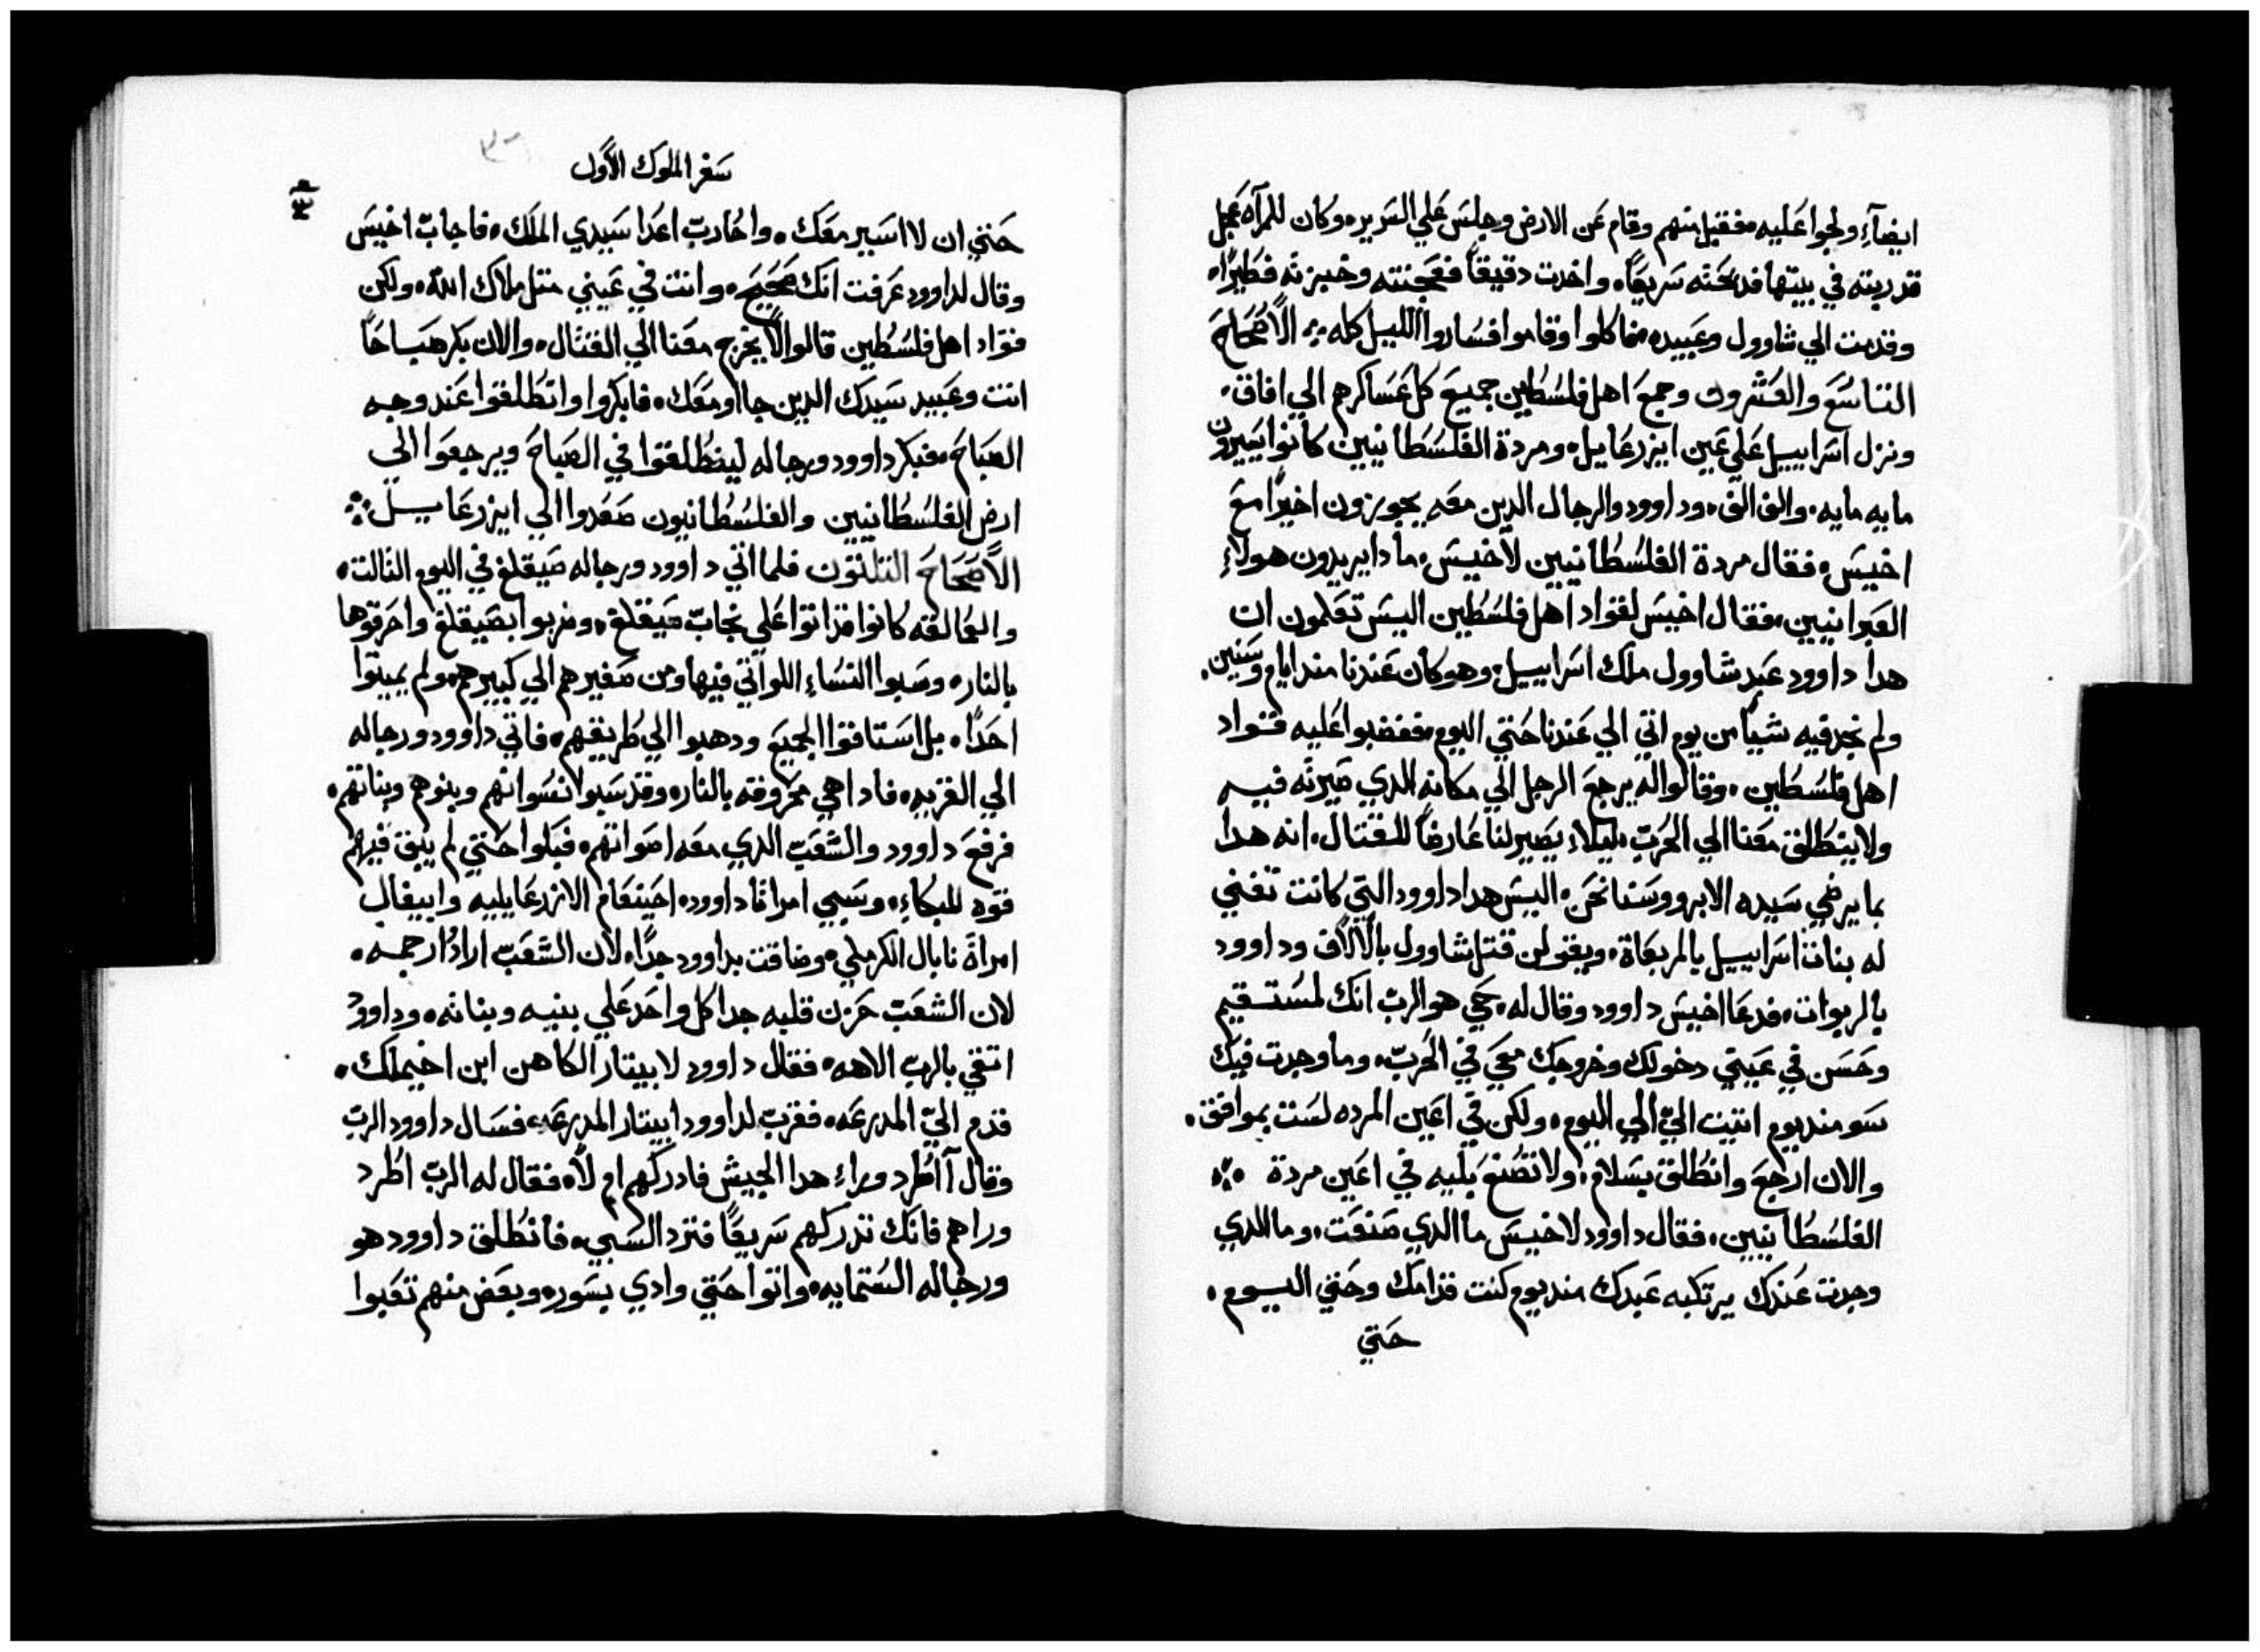 ايضآءِ ولجوا عليه فقبل منهم وقام عن الارض وجلس علي السرير وكان للمرآه عجل
قد ربته في بيتها فدبحته سريعًا واخدت دقيقاً فعجنته وخبزته فطيرًا
وقدمت الي شاوول وعبيده فاكلوا وقاموا فساروا الليل كله الاصحاح
التاسع والعشرون وجمع اهل فلسطين جميع كل عساكرهم الي افاق
ونزل اسراييل علي عين ايزرعايل ومردة الفلسطانيين كانوا يسيرون
مايه مايه والف الف وداوود والرجال الدين معه يجوزون اخيرًا مع
اخيس فقال مردة الفلسطانيين لاخيس مادا يريدون هولاءِ
العبرانيين فقال اخيس لقواد اهل فلسطين اليس تعلمون ان
هدا داوود عبد شاوول ملك اسراييل وهو كان عندنا مند ايام وسنين
ولم نجد فيه شياً من يوم اتي الي عندنا حتي اليوم فغضبوا عليه قواد
اهل فلسطين وقالوا له يرجع الرجل الي مكانه الدي صيرته فيه
ولا ينطلق معنا الي الحرب ليلاء يصير لنا عارضاً للقتال انه هدا
بما يرضي سيده الا برووسنا نحن اليس هدا داوود التي كانت تغني
له بنات اسراييل بالمربعاة ويقولن قتل شاوول بالالاف وداوود
بالربوات فدعا اخيس داوود وقال له حي هو الرب انك لمستقيم
وحسن في عيني دخولك وخروجك معي في الحرب وما وجدت فيك
سو مند يوم اتيت اليّ الي اليوم ولكن في اعين المرده لست بموافق
والان ارجع وانطلق بسلام ولا تصنع بليه في اعين مردة
الفلسطانيين فقال داوود لاخيس ما الدي صنعت وما الدي
وجدت عندك يرتكبه عبدك مند يوم كنت قدامك وحتي اليوم
حتي
سفر الملوك الاول
٣٦
حتي ان لا اسير معك واحارب اعدا سيدي الملك فاجاب اخيس
وقال لداوود عرفت انك صحيح وانت في عيني متل ملاك الله ولكن
قواد اهل فلسطين قالوا لا يخرج معنا الي القتال والان بكر صباحًا
انت وعبيد سيدك الدين جااو معك فابكروا وانطلقوا عند وجه
الصباح فبكر داوود ورجاله لينطلقوا في الصباح ويرجعوا الي
ارض الفلسطانيين والفلسطانيون صعدوا الي ايزرعاييل
الاصحاح التلتون فلما اتي داوود ورجاله صيقلغ في اليوم التالت
والعمالقه كانوا قد اتوا علي نجاب صيقلغ وضربوا بصيقلغ واحرقوها
بالنار وسبوا النساءِ اللواتي فيها ومن صغيرهم الي كبيرهم ولم يميتوا
احدًا بل استاقوا الجميع ودهبوا الي طريقهم فاتي داوود ورجاله
الي القريه فادا هي محروقه بالنار وقد سبوا نسوانهم وبنوهم وبناتهم
فرفع داوود والشعب الدي معه اصواتهم فبكوا حتي لم يبق فيهم
قوه للبكاءِ وسبي امراتا داوود احينعام الازرعايليه وابيغال
امراة نابال الكرملي وضاقت بداوود جدًا لان الشعب ارادُ ارجمه
لان الشعب حزن قلبه جدا كل واحد علي بنيه وبناته وداوود
اتقي بالرب الاهه فقال داوود لابيتار الكاهن ابن اخيملك
قدم اليّ المدرعه فقرب لداوود ابيتار المدرعه فسال داوود الرب
وقال آاطرد وراءِ هدا الجيش فادركهم ام لا فقال له الرب اطرد
وراهم فانك تدركهم سريعًا فترد السبي فانطلق داوود هو
ورجاله الستمايه واتوا حتي وادي بسور وبعض منهم تعبوا